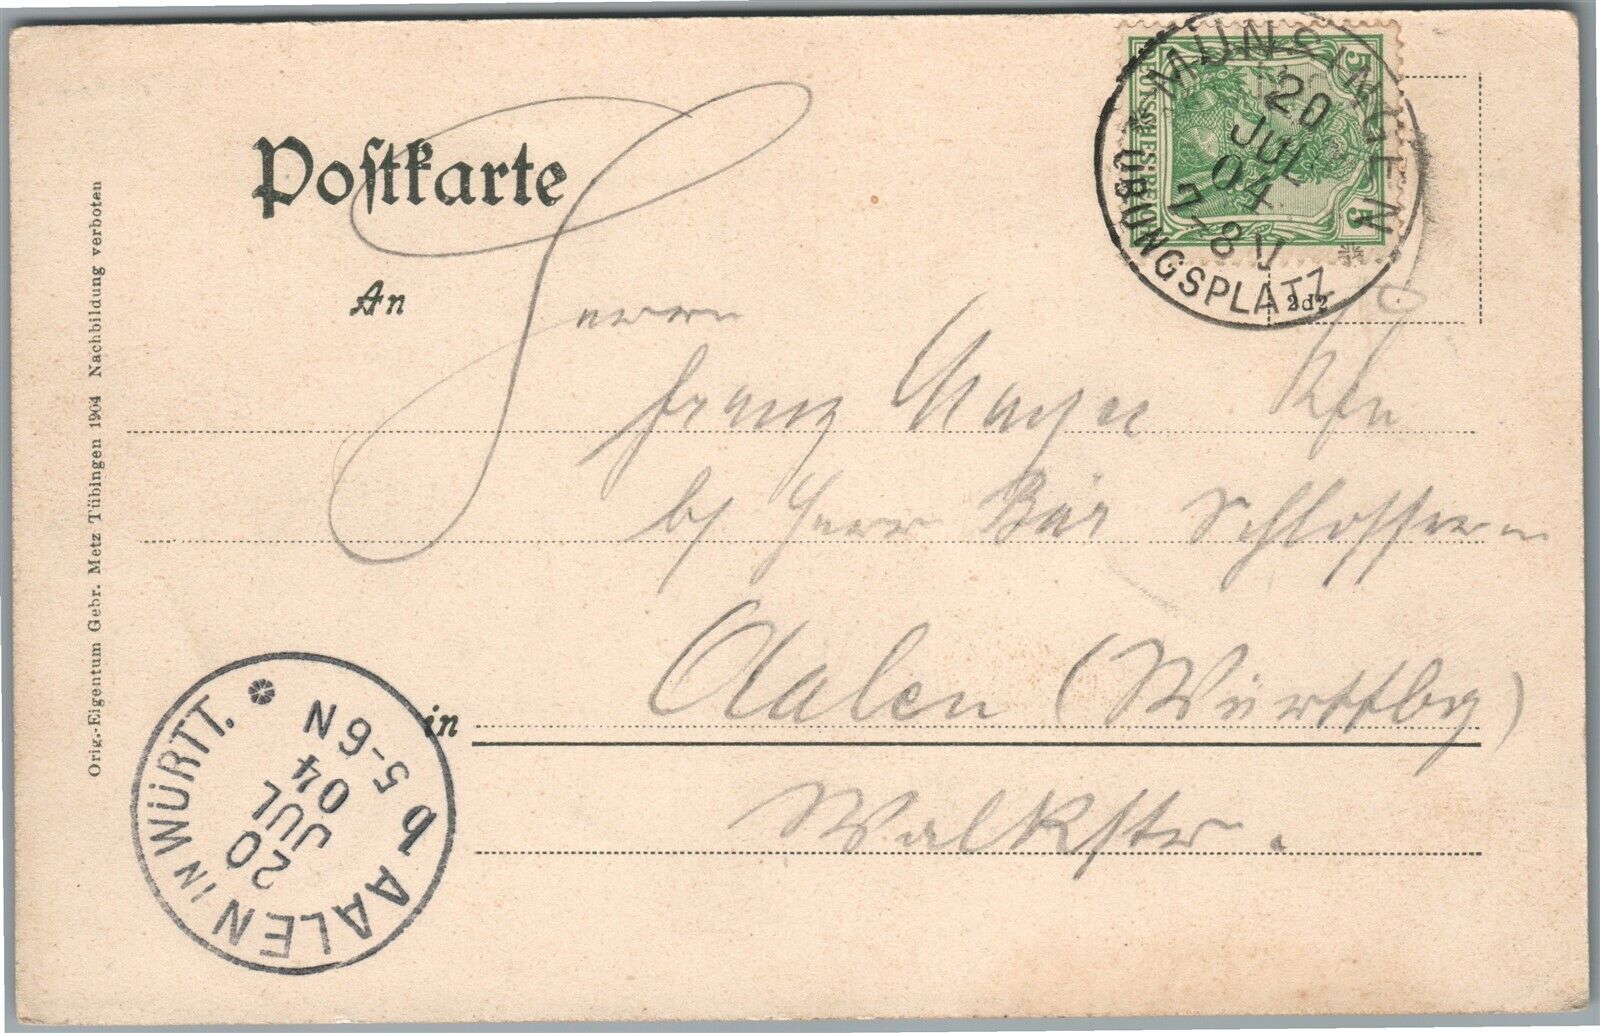 Postkarte
5 5
MÜNSINGEN
20
JUL
04
7-8 V
ÜBUNGSPLATZ
2d2
An
Herrn
Franz Mayer
b/ Herr Bär Schlosser
in Aalen (Württbg)
Walkstr.
AALEN IN WÜRTT.
20
JUL
04
5-6 N
b
Orig.-Eigentum Gebr. Metz Tübingen 1904 Nachbildung verboten